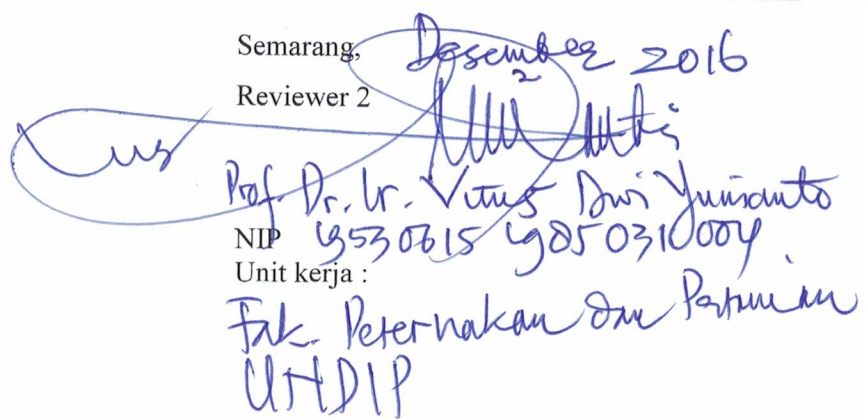 Semarang, Desember 2016
Reviewer 2
Prof. Dr. Ir. Vitus Dwi Yunianto
NIP 19530615 19850310004
Unit kerja :
Fak. Peternakan dan Pertanian
UNDIP